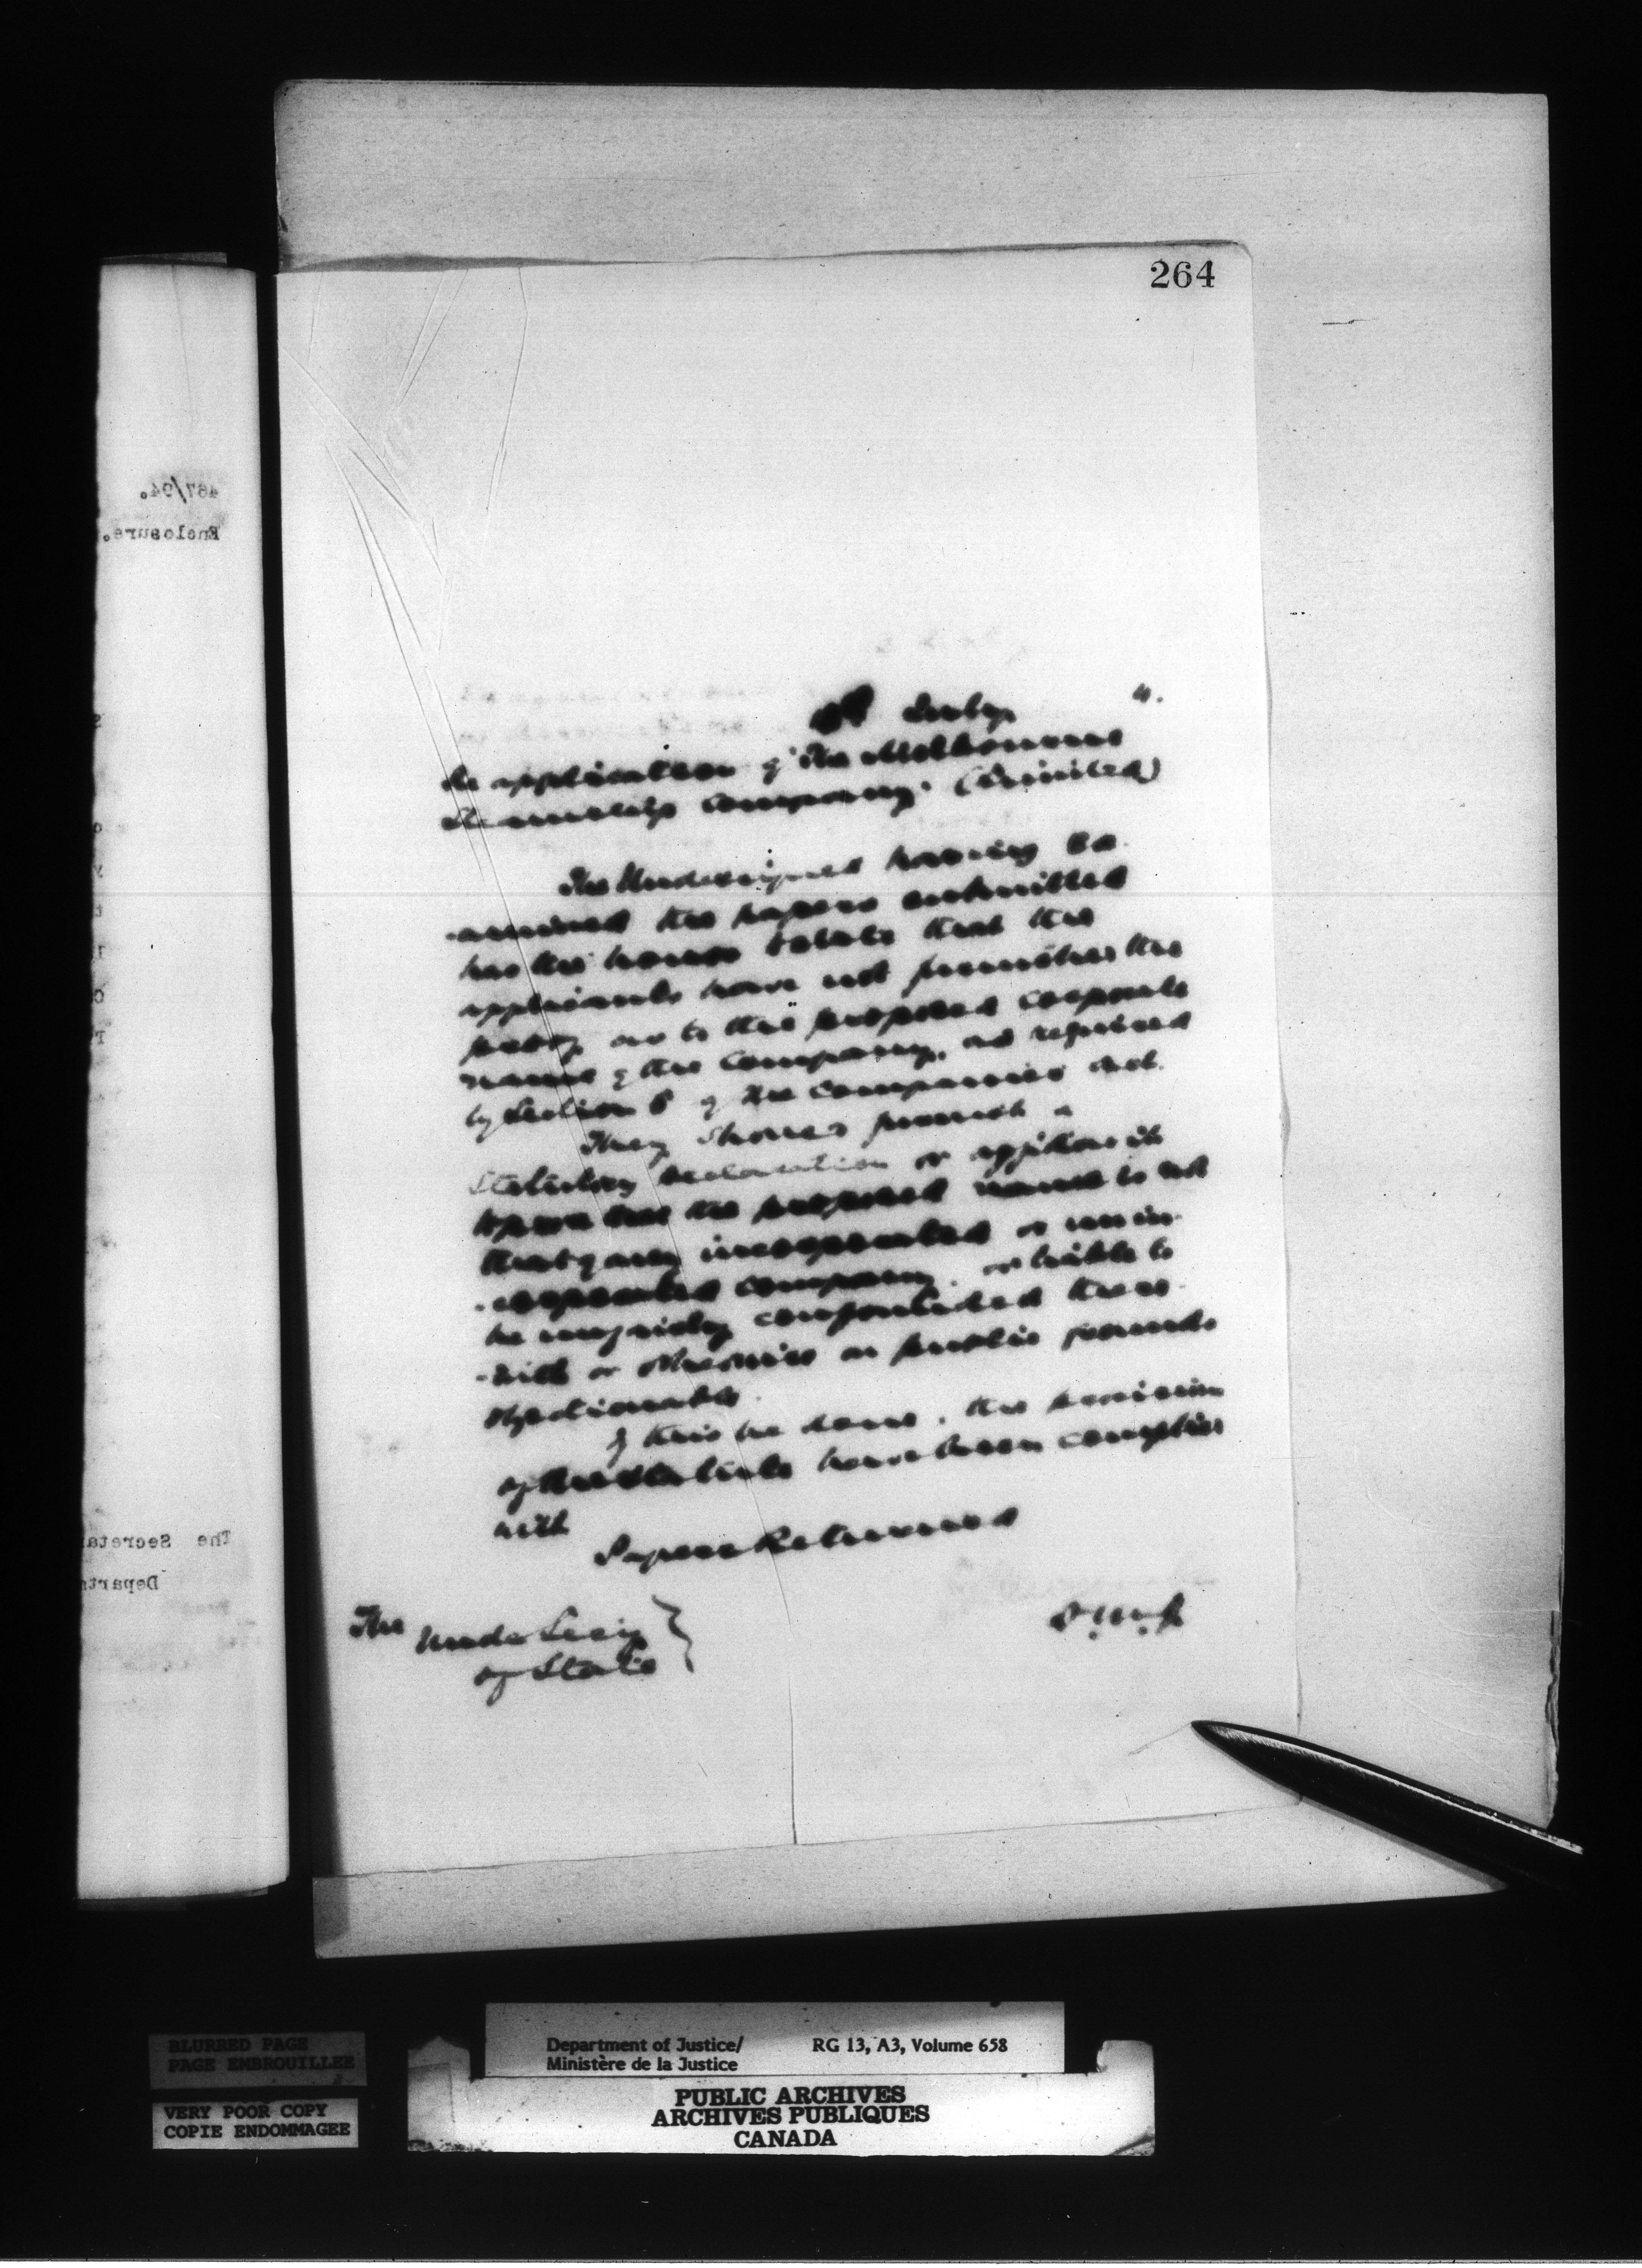 264
July 4.
Re application of "The Melbourne
Steamship Company" (Limited)
The Undersigned having ex
-amined the papers submitted
has the honor to state that the
applicants have not furnished the
proof as to the proposed corporate
name of the Company, as required
by Section 5 of the Companies Act.
They should furnish a
Statutory declaration or affidavit
that the proposed name is not
that of any incorporated or unin
-corporated company, or liable to
be unfairly confounded there
-with or otherwise on public grounds
objectionable.
If this be done, the provisions
of the Statute have been complied
with
Papers Returned
The Under Secy
of State
487/94.
Enclosure.
The Secreta
Depart
BLURRED PAGE
PAGE EMBROUILLEE
VERY POOR COPY
COPIE ENDOMMAGEE
Department of Justice/ RG 13, A3, Volume 658
Ministère de la Justice
PUBLIC ARCHIVES
ARCHIVES PUBLIQUES
CANADA